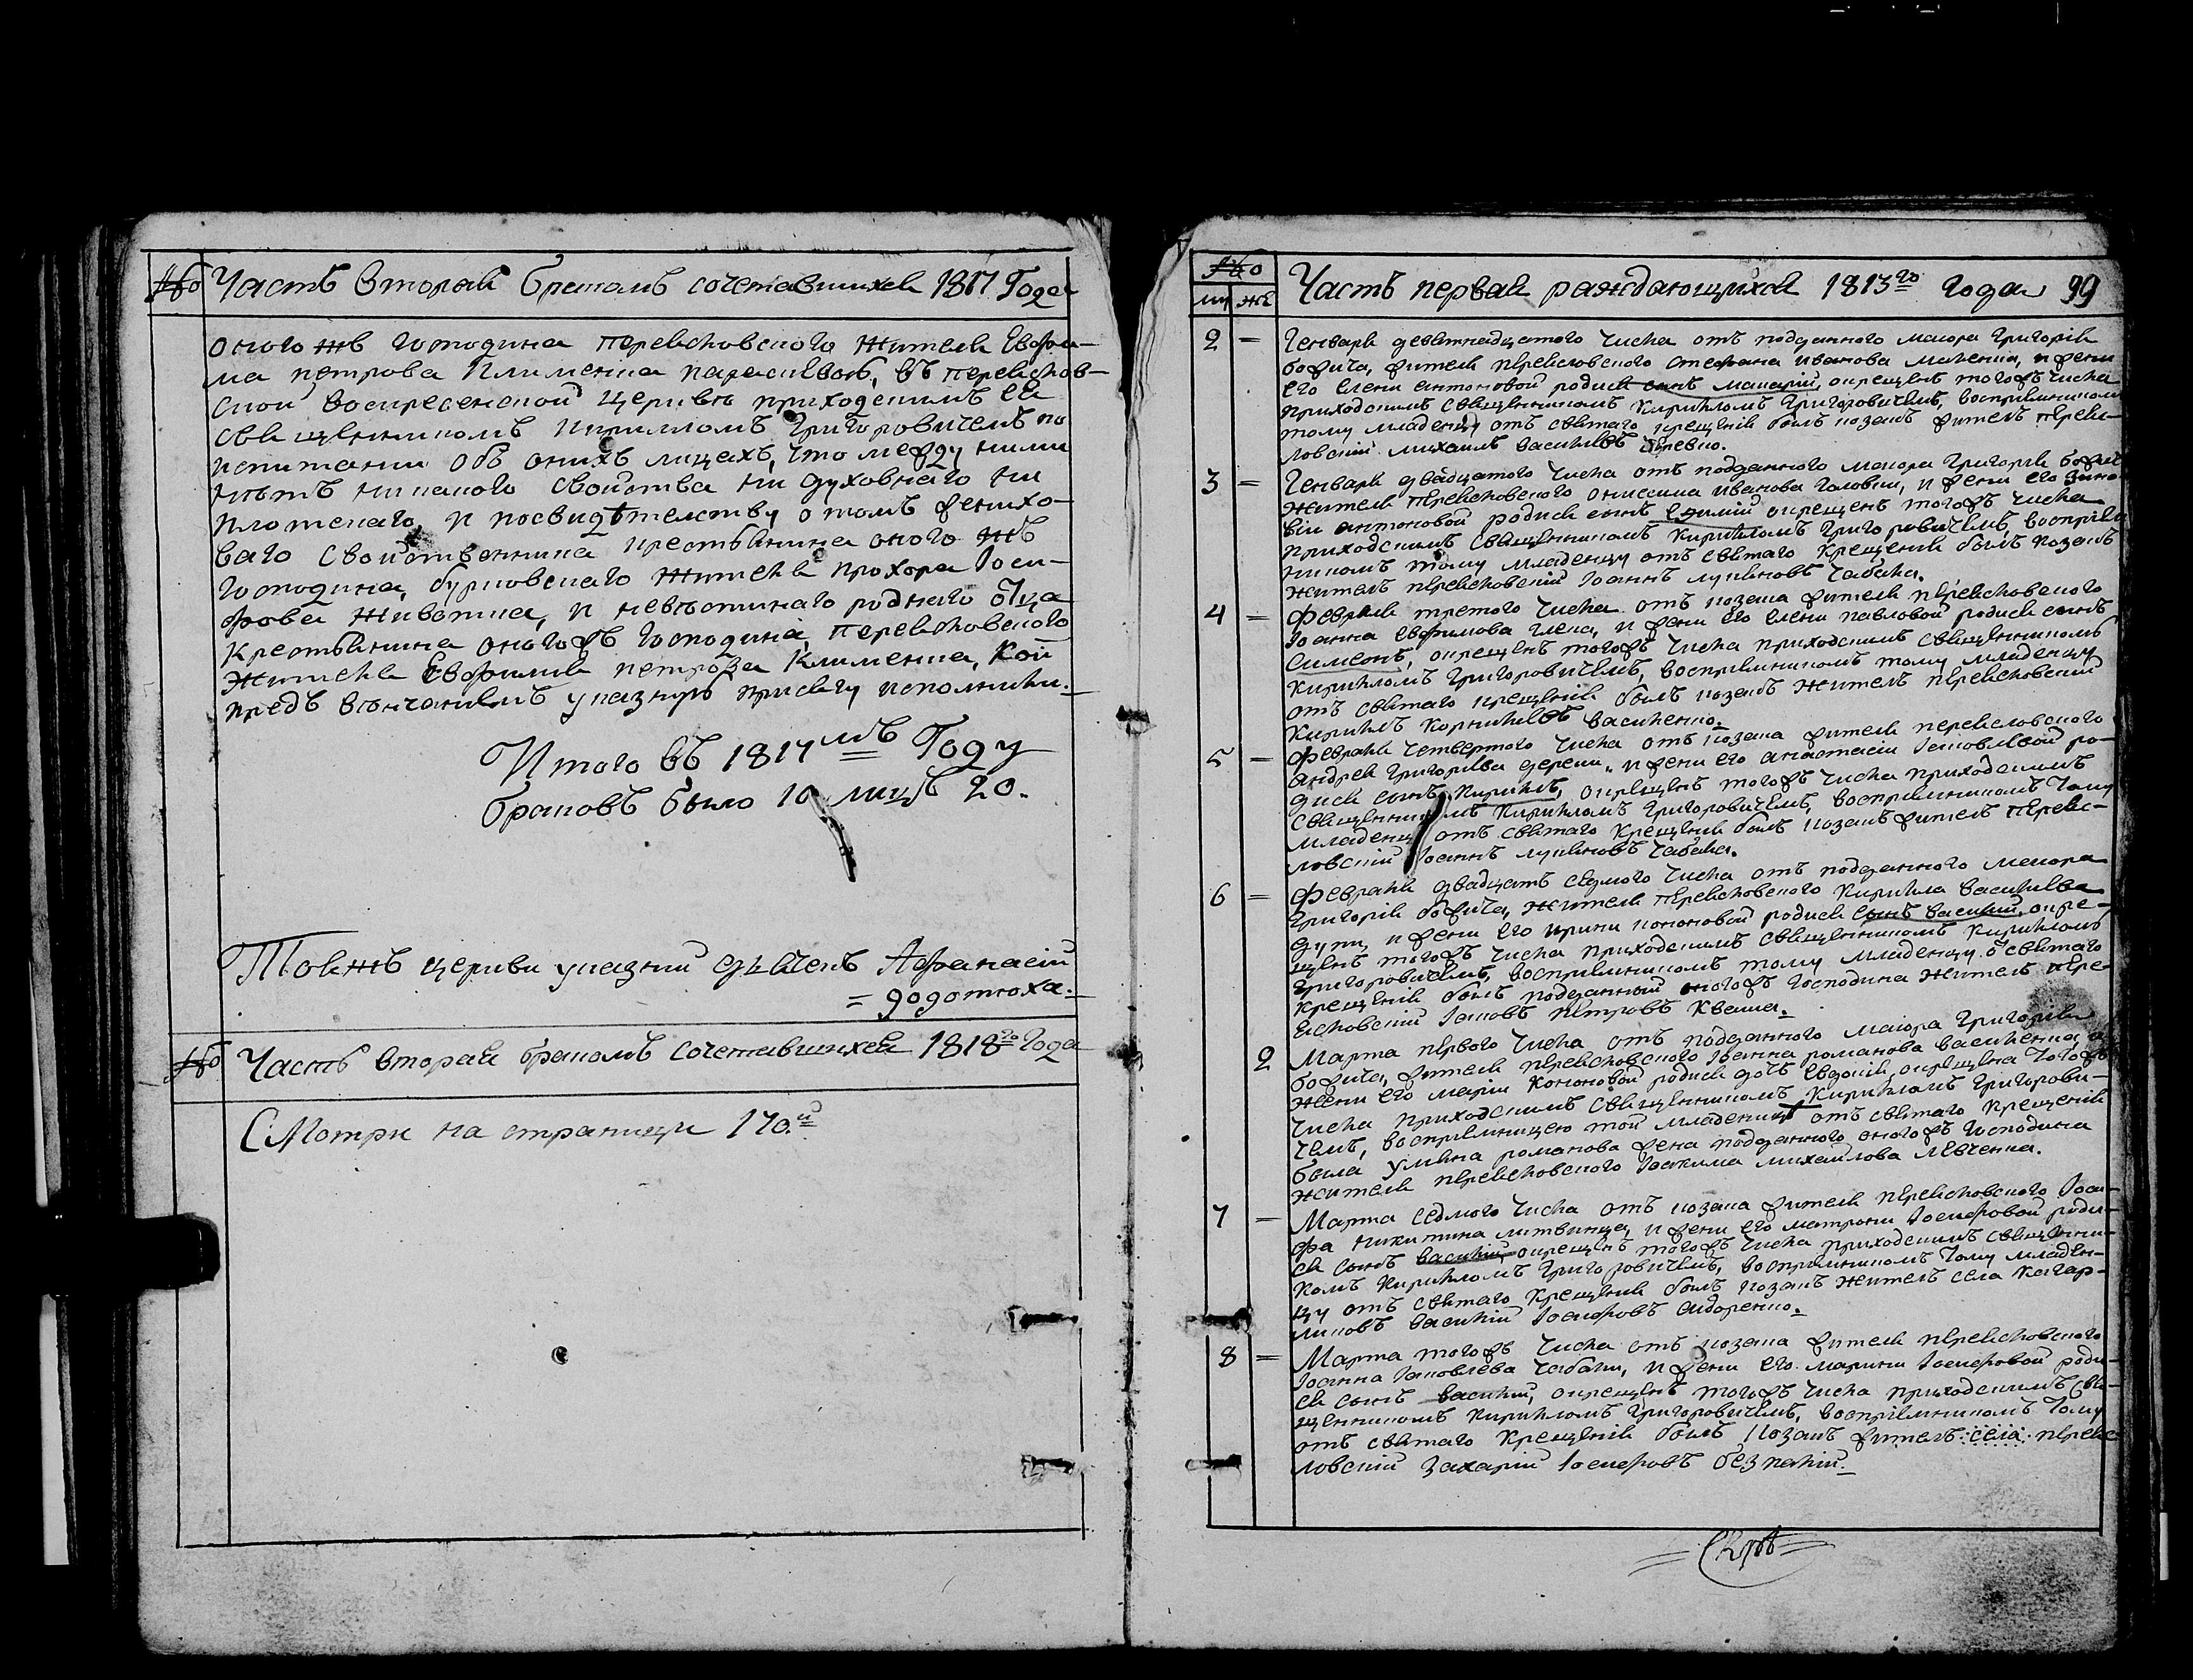 № Часть вторая бракомъ сочетавшихся 1817 Года
оного жъ господина переясловского жителя Евфи-
ма петрова Клименка параскевою, въ переяслов-
ской воскресенской церкви приходскимъ ея
священникомъ Кирилломъ Григоровичемъ по
испитании объ онихъ лицахъ, что между ними
нѣтъ никакого свойства ни духовнаго ни
плотскаго, и посвидѣтелству о томъ женихо-
ваго свойственника крестьянина оного жъ
господина, бурковскаго жителя прохора Іоси-
фова животика, и невѣстинаго роднаго отца
крестьянина оногожъ господина, переясловского
жителя Евфимия петрова Клименка, кои
предъ вѣнчаниемъ указную присягу исполнили.
Итого въ 1817мъ Году
браковъ было 10 лицъ 20.
Тояжъ церкви указний дьячекъ Афанасій
= додотюха.
№ Часть вторая бракомъ сочетавшихся 1818го Года
Смотри на страници 170.й
№
му же Часть первая раждающихся 1813го года 99
2 = Генваря девятнадцатого числа отъ подданного маиора Григорія
божича, жителя переясловского стефана иванова, и жени
его елени антоновой родися синъ макарий, окрещенъ тогожъ числа
приходскимъ священникомъ Кирилломъ Григоровичемъ, восприемникомъ
тому младенцу отъ святаго крещенія былъ козакъ житель переяс-
ловский михаилъ васильевъ
3 = Генваря двадцатого числа отъ подданного маиора Григорія божича
жителя переясловского онисима иванова головки, и жени его зино-
віи антоновой родися синъ окрещенъ тогожъ числа
приходскимъ священникомъ Кирилломъ Григоровичемъ, восприем-
никомъ тому младенцу отъ святаго крещенія былъ козакъ
житель переясловский Іоаннъ лукяновъ чабака.
4 = Февраля третого числа отъ козака жителя переясловского
Іоанна евфимова, и жени его елени павловой родися синъ
симеонъ, окрещенъ тогожъ числа приходскимъ священникомъ
Кирилломъ Григоровичемъ, восприемникомъ тому младенцу
отъ святаго крещенія былъ козакъ житель переясловский
Кирилъ корнилиевъ василенко.
5 = Февраля четвертого числа отъ козака жителя переясловского
андрея григориева дереки, и жени его анастасіи Іаковлевой ро-
дися синъ Кирилъ, окрещенъ тогожъ числа приходскимъ
священникомъ Кирилломъ Григоровичемъ, восприемникомъ тому
младенцу отъ святаго крещенія былъ козакъ житель переяс-
ловский Іоаннъ лукяновъ чабака.
6 = Февраля двадцать седмого числа отъ подданного маиора
Григорія божича, жителя переясловского Кирилла васильева
и жени его ирини кононовой родися синъ василий, окре-
щенъ тогожъ числа приходскимъ священникомъ Кирилломъ
Григоровичемъ, восприемникомъ тому младенцу отъ святаго
крещенія былъ подданный оногожъ господина житель пере-
ясловский Іаковъ петровъ Кваша.
2 Марта первого числа отъ подданного маиора Григорія
божича, жителя переясловского Іоанна романова василенка, и
жени его маріи Кононовой родися дочь евдокія, окрещена тогожъ
числа приходскимъ священникомъ Кирилломъ Григорови-
чемъ, восприемницею той младеницѣ отъ святаго крещенія
была романова жена подданного оногожъ господина
жителя переясловского Іоакима михаилова левченка.
7 = Марта седмого числа отъ козака жителя переясловского Іоси-
фа никитина литвинца, и жени его матрони Іосифовой роди-
ся синъ василий, окрещенъ тогожъ числа приходскимъ священни-
комъ Кирилломъ Григоровичемъ, восприемникомъ тому младен-
цу отъ святаго крещенія былъ козакъ житель села кагар-
ликовъ василий Іосифовъ сидоренко.
8 = Марта тогожъ числа отъ козака жителя переясловского
Іоанна Іаковлева чабаки, и жени его марини Іосифовой роди-
ся синъ василий, окрещенъ тогожъ числа приходскимъ свя-
щенникомъ Кирилломъ Григоровичемъ, восприемникомъ тому
отъ святаго крещенія былъ козакъ житель села переяс-
ловский захарий Іосифовъ безпалий.